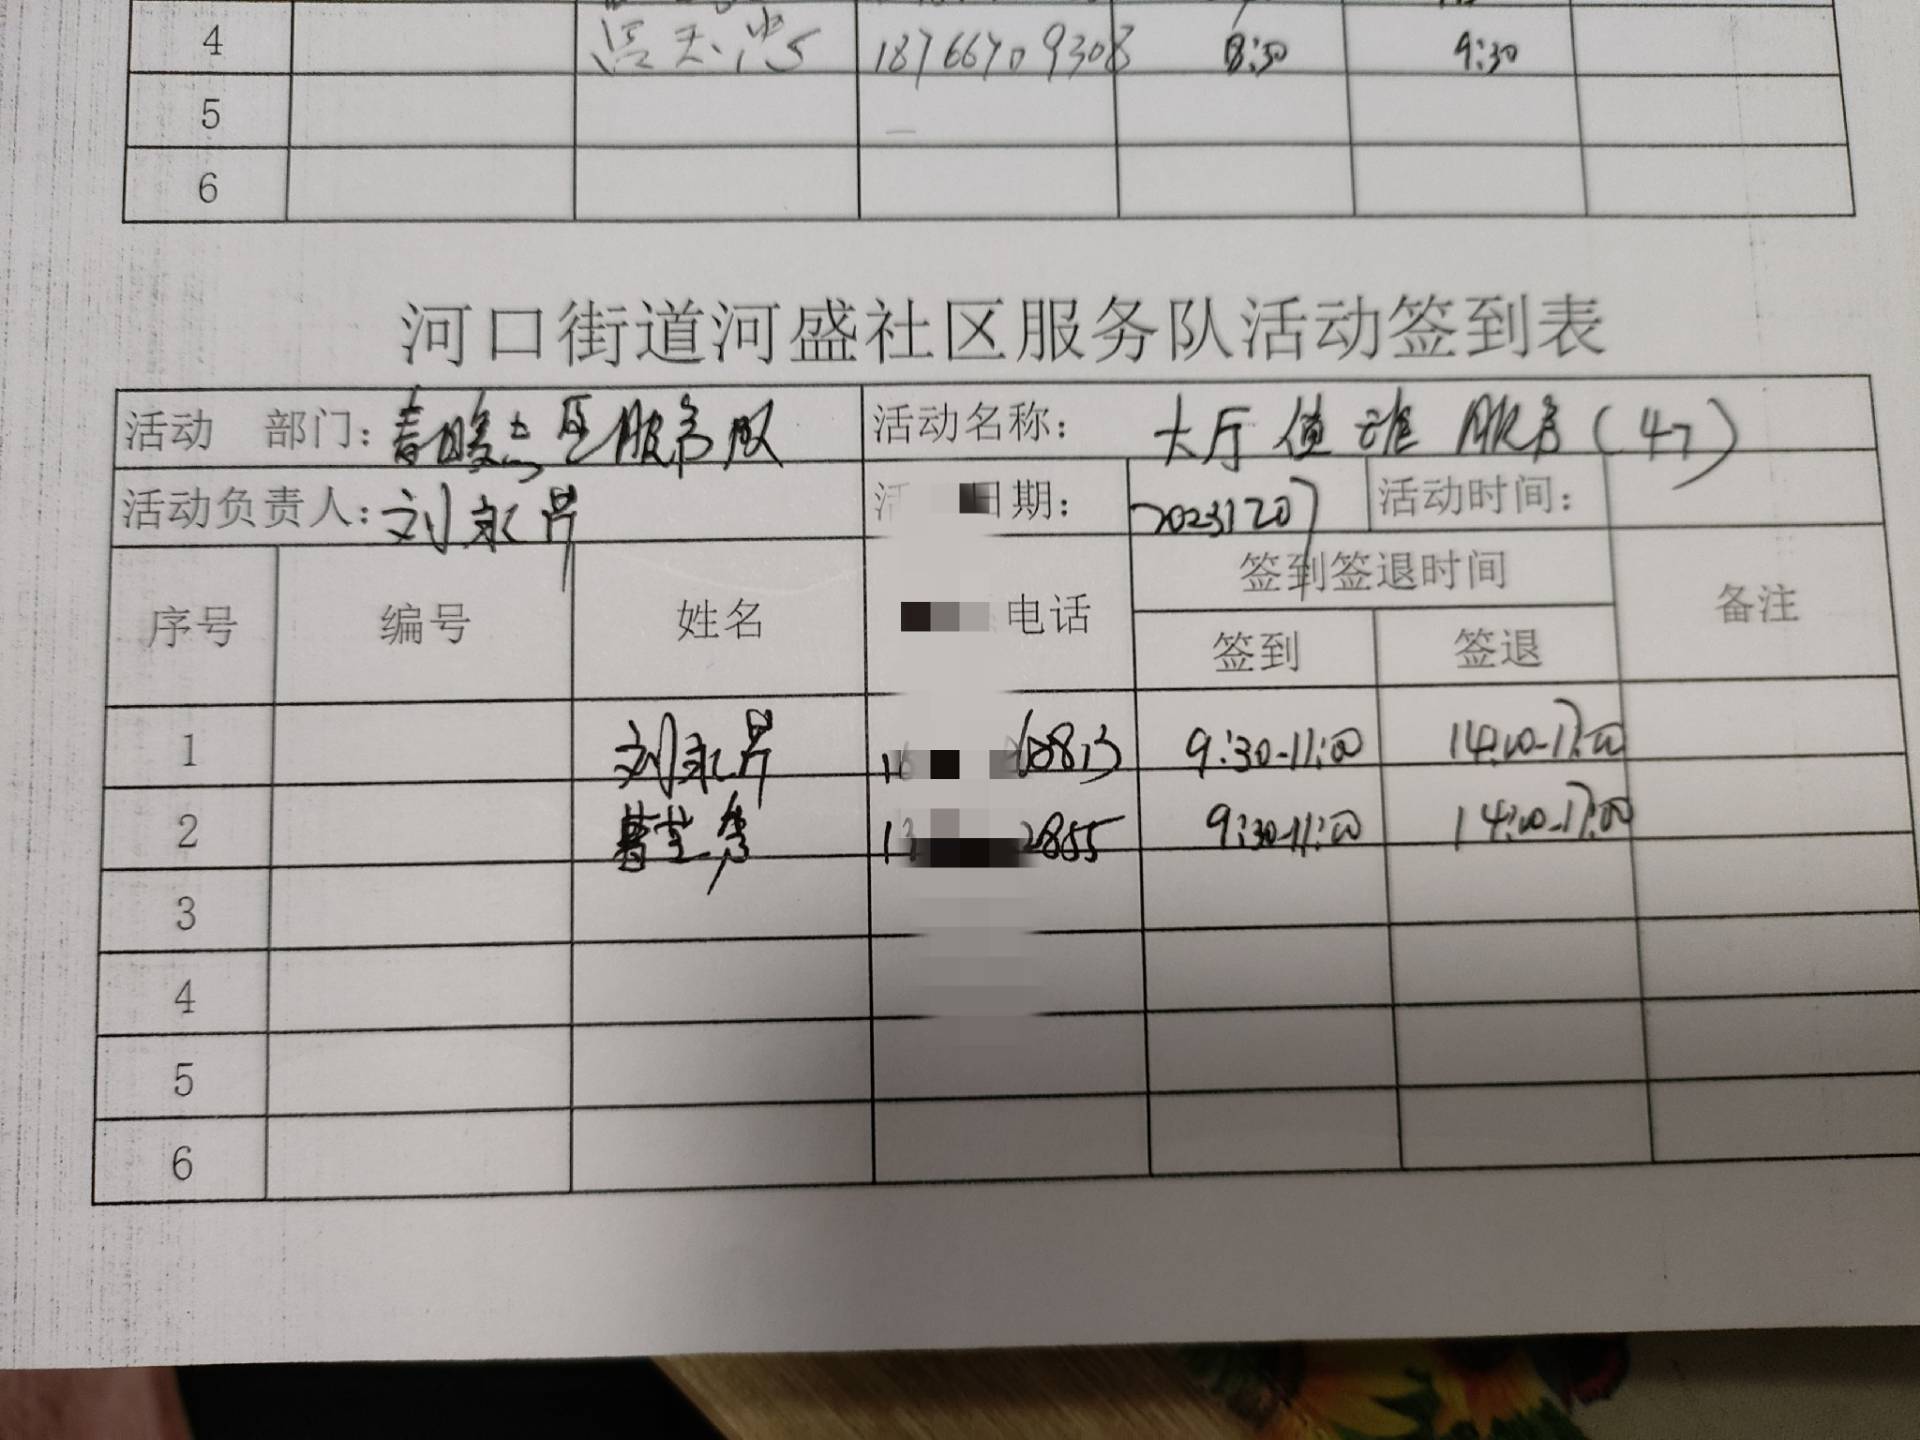 4 18766709308 8:30 9:30
5
6
河口街道河盛社区服务队活动签到表
活动 部门：春暖志愿服务队 活动名称： 大厅值班 服务（47）
活动负责人：刘永 活 日期： 20231207 活动时间：
序号 编号 姓名 电话 签到签退时间 备注
签到 签退
1 刘永 0813 9:30-11:00 14:00-17:00
2 2855 9:30-11:00 14:00-17:00
3
4
5
6